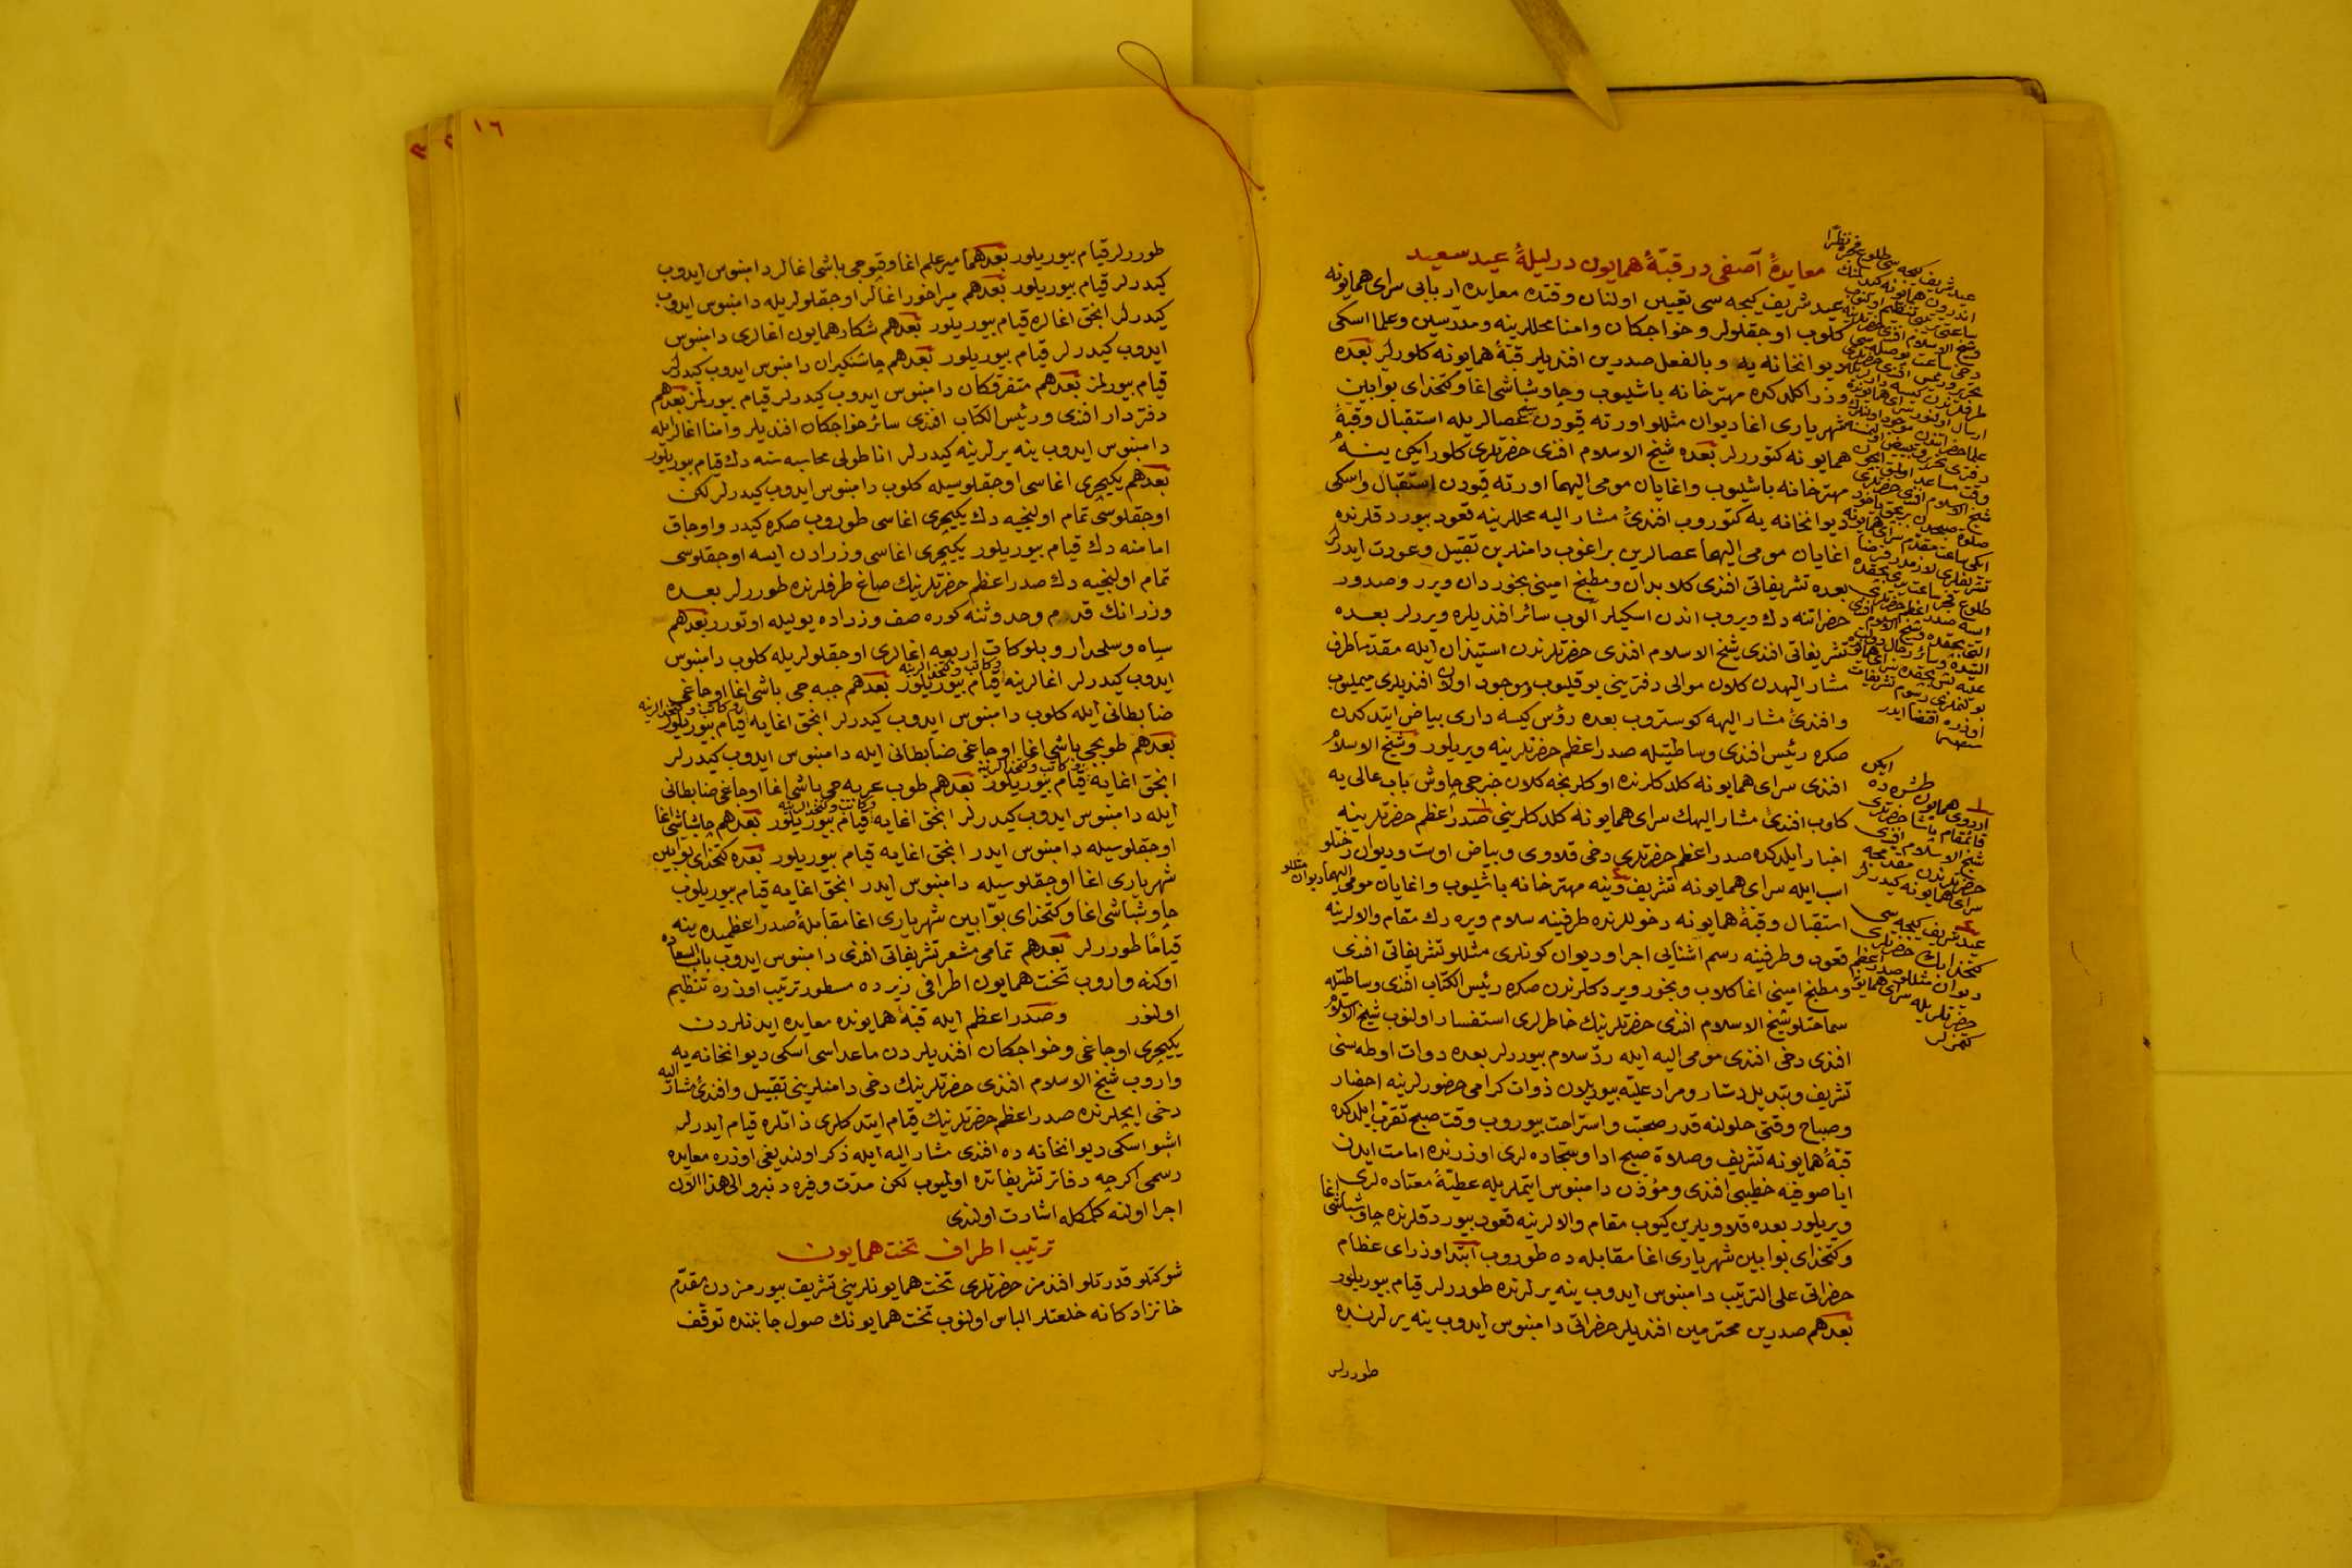 معایدۀ آصفی در قبّۀ همایون در لیلۀ عید سعید
عید شریف کیجه سی تعیین اولنان وقتده معایده اربابی سرای همایونه
کلوب اوجقلولر و خواجکان و امنا محللرینه و مدرّسین و علما اسکی
دیوانخانه یه و بالفعل صدرین افندیلر قبّۀ همایونه کلورلر بعده
وزرا کلدکده مهترخانه باشلیوب و چاوشباشی اغا و کتخدای بوابین
شهریاری اغا دیوان مثللو اورته قپودن عصالریله استقبال و قبۀ
همایونه کتوررلر بعده شیخ الاسلام افندی حضرتلری کلورایکن ینه
مهترخانه باشلیوب و اغایان مومی الیهما اورته قپودن استقبال و اسکی
دیوانخانه یه کتوروب افندئ مشار الیه محللرینه قعود بیوردقلرنده
اغایان مومی الیهما عصالرین براغوب دامنلرین تقبیل و عودت ایدرلر
بعده تشریفاتی افندی کلابدان و مطبخ امینی بخوردان ویرر و صدور
حضراتنه دك ویروب اندن اسکیلر الوب سائر افندیلره ویررلر بعده
تشریفاتی افندی شیخ الاسلام افندی حضرتلرندن استیذان ایله مقدّما طرف
مشار الیهدن کلان موالی دفترینی یوقلیوب و موجود اولان افندیلری میملیوب
و افندئ مشار الیهه کوستروب بعده رؤس کیسه داری بیاض ایتدکدن
صکره رئیس افندی وساطتیله صدر اعظم حضرتلرینه ویریلور و شیخ الاسلام
افندی سرای همایونه کلدکلرنده اوکلرنجه کلان خرجی چاوش باب عالی یه
کلوب افندئ مشار الیهك سرای همایونه کلدکلرینی صدر اعظم حضرتلرینه
اخبار ایلدکده صدر اعظم حضرتلری دخی قلاوی و بیاض اوست و دیوان رختلو
اسب ایله سرای همایونه تشریف و ینه مهترخانه باشلیوب و اغایان مومی الیهما دیوان مثللو
استقبال و قبۀ همایونه دخوللرنده طرفینه سلام ویره رك مقام والالرینه
قعود و طرفینه رسم اشنایی اجرا و دیوان کونلری مثللو تشریفاتی افندی
و مطبخ امینی اغا کلاب و بخور ویردکلرندن صکره رئیس الکتّاب افندی وساطتیله
سماحتلو شیخ الاسلام افندی حضرتلرینك خاطرلری استفسار اولنوب شیخ الاسلام
افندی دخی افندی مومی الیه ایله ردّ سلام بیوررلر بعده دوات اوطه سنی
تشریف و تبدیل دستار و مراد علیّه بیوریلان ذوات کرامی حضورلرینه احضار
و صباح وقتی حلولنه قدر صحبت و استراحت بیوروب وقت صبح تقرّب ایلدکده
قبّۀ همایونه تشریف و صلاة صبح ادا و سجّاده لری اوزرنده امامت ایدن
ایاصوفیه خطیبی افندی و مؤذن دامنبوس ایتملریله عطیّۀ معتاده لری
ویریلور بعده قلاویلرین کیوب مقام والالرینه قعود بیوردقلرنده چاوشباشی اغا
و کتخدای بوابین شهریاری اغا مقابله ده طوروب ابتدا وزرای عظام
حضراتی علی الترتیب دامنبوس ایدوب ینه یرلرنده طوررلر قیام بیوریلور
بعدهم صدرین محترمین افندیلر حضراتی دامنبوس ایدوب ینه یرلرنده
طوررلر
اردوی همایون طشره ده ایکن
قائمقام پاشا حضرتلری
شیخ الاسلام افندی
حضرتلرندن مقدمجه
سرای همایونه کیدرلر
عید شریف کیجه سی
کتخدا بك حضرتلری
دیوان مثللو صدر اعظم
حضرتلریله سرای همایونه
کتمزلر
١٦
طوررلر قیام بیوریلور بعدهما میرعلم اغا و قپوجی باشی اغالر دامنبوس ایدوب
کیدرلر قیام بیوریلور بعدهم میراخور اغالر اوجقلولریله دامنبوس ایدوب
کیدرلر انجق اغالره قیام بیوریلور بعدهم شکار همایون اغالری دامنبوس
ایدوب کیدرلر قیام بیوریلور بعدهم چاشنکیران دامنبوس ایدوب کیدرلر
قیام بیورلمز بعدهم متفرقکان دامنبوس ایدوب کیدرلر قیام بیورلمز بعدهم
دفتردار افندی و رئیس الکتّاب افندی سائر خواجکان افندیلر و امنا اغالر ایله
دامنبوس ایدوب ینه یرلرینه کیدرلر اناطولی محاسبه سنه دك قیام بیوریلور
بعدهم یکیچری اغاسی اوجقلوسیله کلوب دامنبوس ایدوب کیدرلر لکن
اوجقلوسی تمام اولنجیه دك یکیچری اغاسی طوروب صکره کیدر و اوجاق
امامنه دك قیام بیوریلور یکیچری اغاسی وزرادن ایسه اوجقلوسی
تمام اولنجیه دك صدر اعظم حضرتلرینك صاغ طرفلرنده طوررلر بعده
وزرانك قدم و حدوثنه کوره صف وزراده یولیله اوتورر بعدهم
سپاه و سلحدار و بلوکات اربعه اغالری اوجقلولریله کلوب دامنبوس
ایدوب کیدرلر اغالرینه و کاتب و کتخدالرینه قیام بیوریلور بعدهم جبه جی باشی اغا اوجاغی
ضابطانی ایله کلوب دامنبوس ایدوب کیدرلر انجق اغایه و کاتب و کتخدالرینه قیام بیوریلور
بعدهم طوبجی باشی اغا اوجاغی ضابطانی ایله دامنبوس ایدوب کیدرلر
انجق اغایه و کاتب و کتخدالرینه قیام بیوریلور بعدهم طوب عربه جی باشی اغا اوجاغی ضابطانی
ایله دامنبوس ایدوب کیدرلر انجق اغایه و کاتب و کتخدالرینه قیام بیوریلور بعدهم چاوشباشی اغا
اوجقلوسیله دامنبوس ایدر انجق اغایه قیام بیوریلور بعده کتخدای بوابین
شهریاری اغا اوجقلوسیله دامنبوس ایدر انجق اغایه قیام بیوریلوب
چاوشباشی اغا و کتخدای بوّابین شهریاری اغا مقابلۀ صدر اعظمیده ینه
قیاماً طوررلر بعدهم تمامی مشعر تشریفاتی افندی دامنبوس ایدوب باب السعاده
اوکنه واروب تخت همایون اطرافی زیرده مسطور ترتیب اوزره تنظیم
اولنور و صدر اعظم ایله قبّۀ همایونده معایده ایدنلردن
یکیچری اوجاغی و خواجکان افندیلردن ماعداسی اسکی دیوانخانه یه
واروب شیخ الاسلام افندی حضرتلرینك دخی دامنلرینی تقبیل و افندئ مشار الیه
دخی ایچلرنده صدر اعظم حضرتلرینك قیام ایتدکلری ذاتلره قیام ایدرلر
اشبو اسکی دیوانخانه ده افندی مشار الیه ایله ذکر اولندیغی اوزره معایده
رسمی اکرچه دفاتر تشریفاتده اولمیوب لکن مدّت وفیره دنبرو الی هذا الآن
اجرا اولنه کلمکله اشارت اولندی
ترتیب اطراف تخت همایون
شوکتلو قدرتلو افندمز حضرتلری تخت همایونلرینی تشریف بیورمزدن مقدّم
خانزادکانه خلعتلر الباس اولنوب تخت همایونك صول جانبنده توقّف